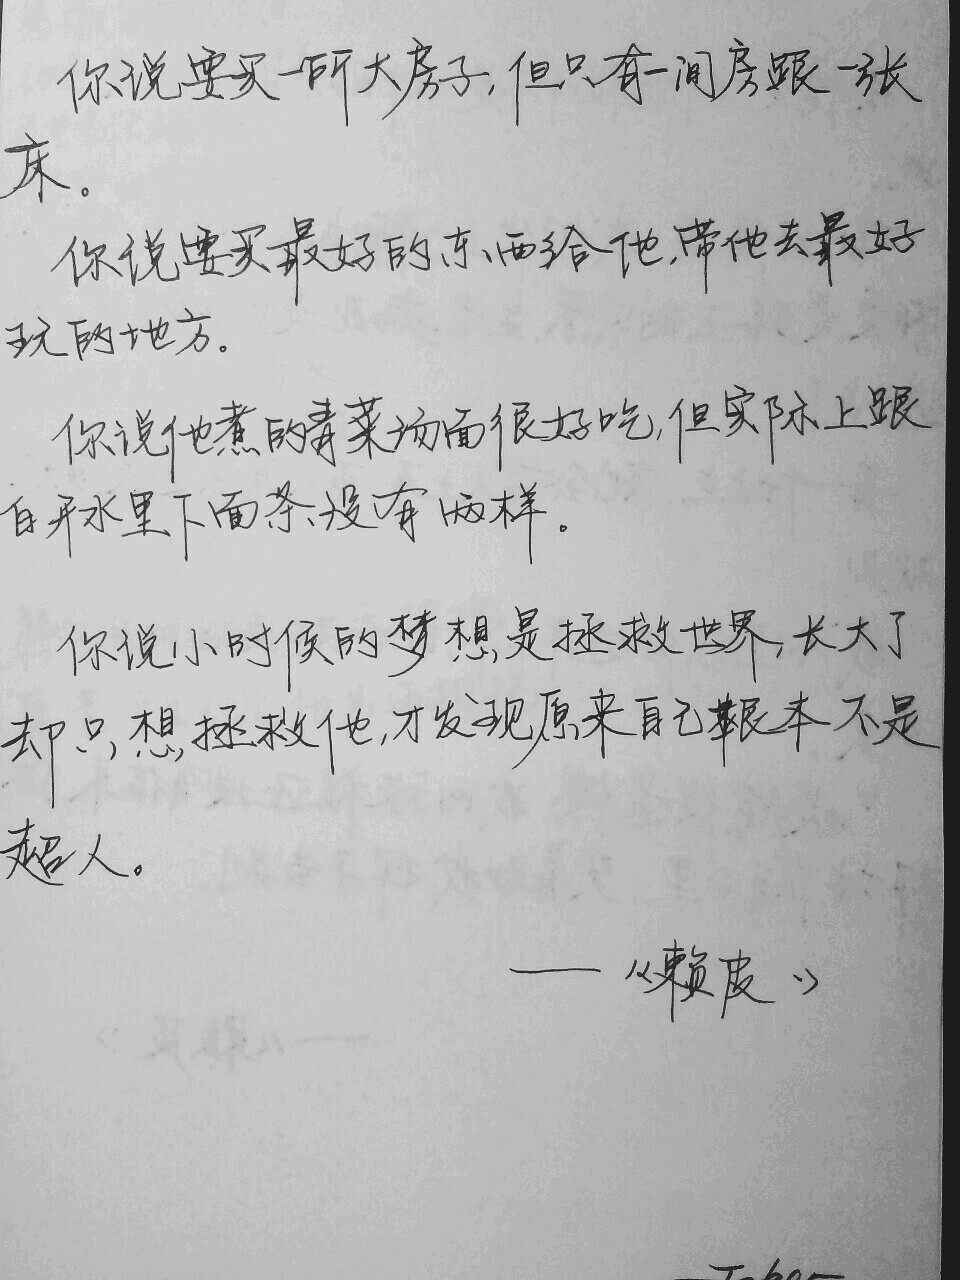 你说要买一所大房子,但只有一间房跟一张
床。
你说要买最好的东西给他,带他去最好
玩的地方。
你说他煮的青菜汤面很好吃,但实际上跟
白开水里下面条没有两样。
你说小时候的梦想是拯救世界,长大了
却只想拯救他,才发现原来自己根本不是
超人。
——《赖皮》